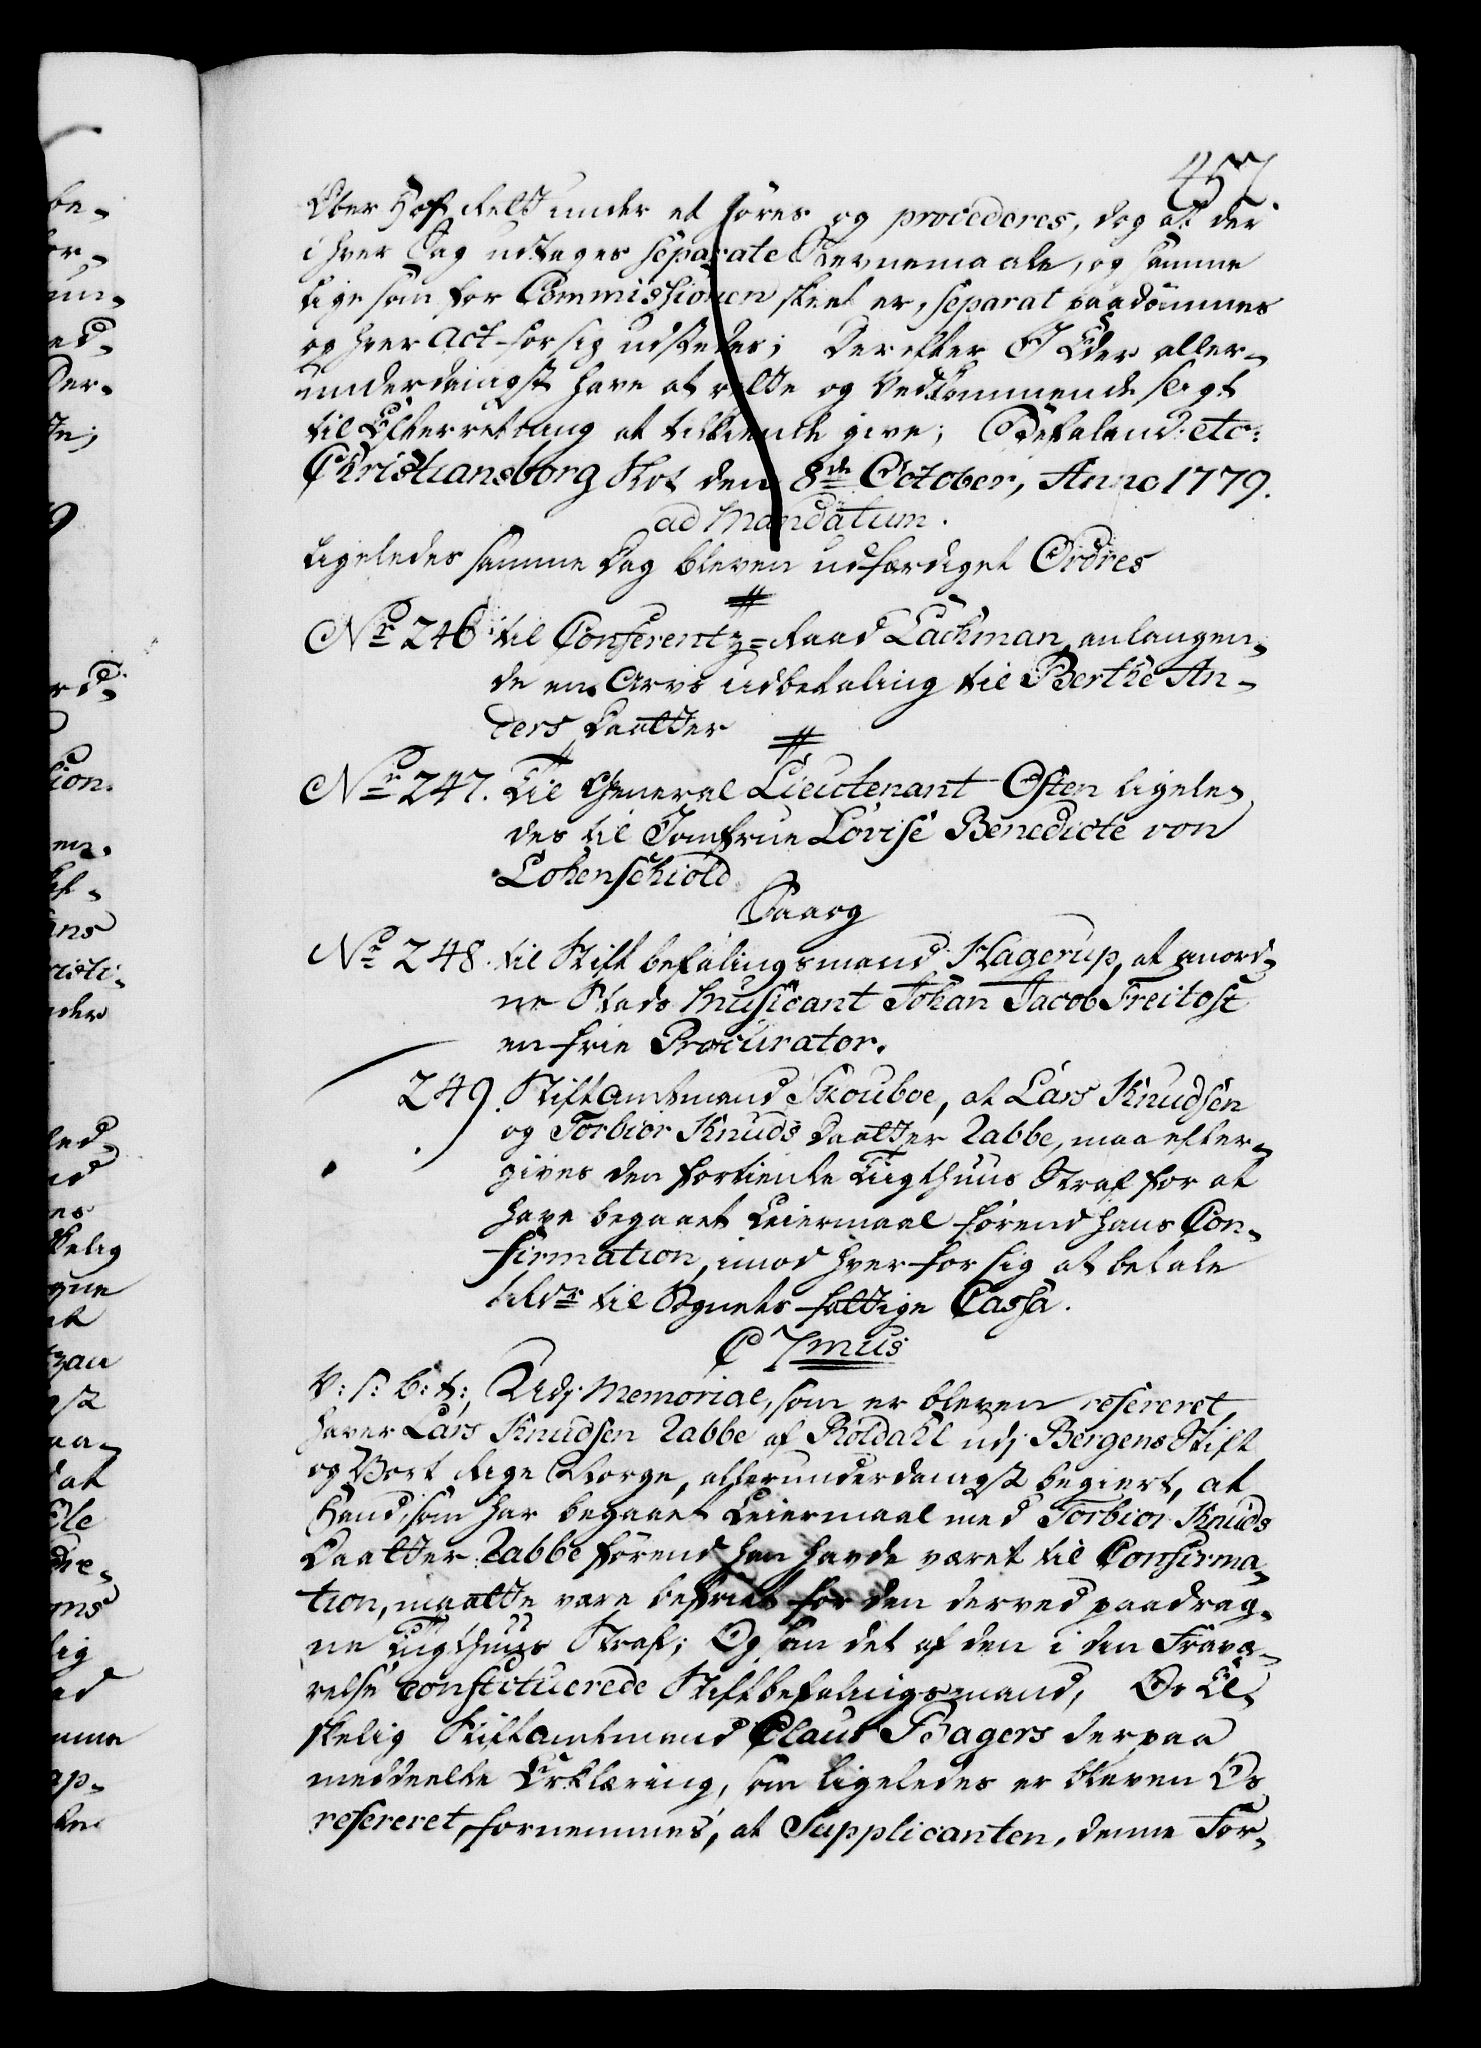 457.
Ober Hof Rett under et føres og procederes, dog at der
i hver Sag udtages separate Stevnemaale, og samme
lige som for Commissionen skeet er, separat paadømmes
og hver Act for sig udstedes; Derefter I Eder aller-
underdanigst have at rette og Vedkommende sligt
til Efterretning at tilkiende give; Befalend: etc:
Christiansborg Slot den 8de October, Anno 1779.
ad Mandatum.
Ligeledes samme Dag bleven udfærdiget Ordres
Nr 246 til Conferentz-Raad Lachman, anlangen-
de en Arvs udbetaling til Berthe An-
ders Daatter
Nr 247. Til General Lieutenant Osten ligele-
des til Jomfrue Lovise Benedicte von
Cohenschiold
Saa og
Nr 248. til Stiftbefalingsmand Hagerup, at anord-
ne Stads Musicant Johan Jacob Freitost
en frie Procurator.
249. Stiftamtmand Skouboe, at Lars Knudsen
og Torbior Knuds Daatter Rabbe, maa efter-
gives den fortiente Tugthuus Straf for at
have begaaet Leiermaal førend hans Con-
firmation, imod hver for sig at betale
til Sognets fattige Cassa.
C 7mus
V: S: B: t:, Udj Memorial, som er bleven refereret,
haver Lars Knudsen Rabbe af Röldahl udj Bergens Stift
og Vort Rige Norge, allerunderdanigst begiert, at
Hand, som har begaaet Leiermaal med Torbior Knuds
Daatter Rabbe førend han havde været til Confirma-
tion, maatte vare befriet for den derved paadrag-
ne Tugthuus Straf; Og som det af den i den Fravæ-
relse constituerede Stiftbefalingsmand, Os El-
skelig Stiftamtmand Claus Bagers derpaa
meddeelte Erklæring, som ligeledes er bleven Os
refereret, fornemmes, at Supplicanten, denne For-